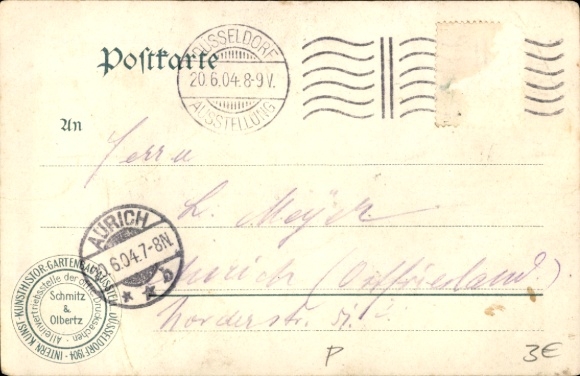 Postkarte
DÜSSELDORF
20.6.04. 8-9 V.
AUSSTELLUNG
An
Herrn
L. Meyer
Aurich (Ostfriesland).
Norderstr.
AURICH
6.04. 7-8N.
* * b
INTERN. KUNST- KUNSTHISTOR- GARTENBAU DÜSSELDORF 1904
Alleinvertriebsstelle der Drucksachen
Schmitz
&
Olbertz
P
3€